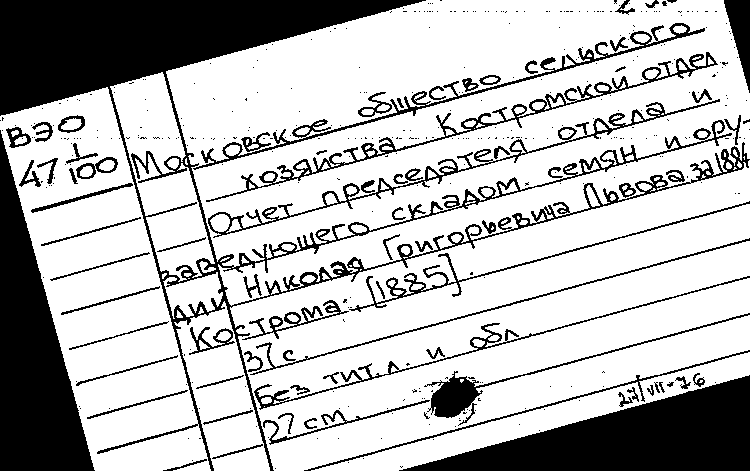 ВЭО
47 1/100
Московское общество сельского
хозяйства. Костромской отдел.
Отчет председателя отдела и
заведующего складом семян и ору-
дий Николая Григорьевича Львова за 1884
Кострома, [1885].
37 с.
Без тит. л. и обл.
27 см.
27/VII-76